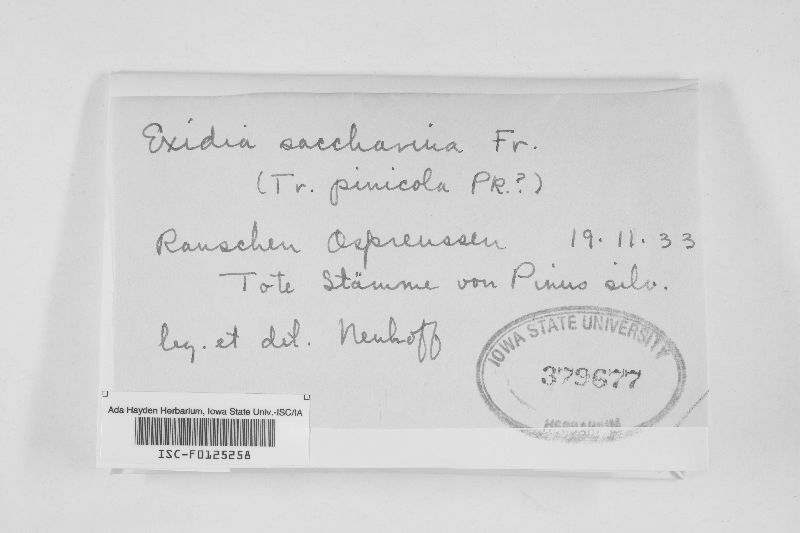 Exidia saccharina Fr.
(Tr. pinicola PR.?)
Rauschen Ospreussen 19.11.33
Tote Stämme von Pinus silv.
leg. et det. Neuhoff
IOWA STATE UNIVERSITY
379677
HERBARIUM
Ada Hayden Herbarium, Iowa State Univ.-ISC/IA
ISC-F0125258